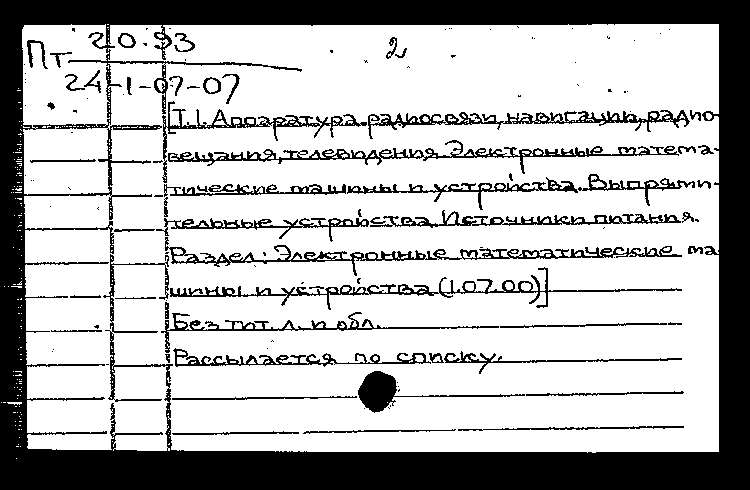 20.93 2
Пт
24-1-07-07
[Т.1. Аппаратура радиосвязи, навигации, радио-
вещания, телевидения. Электронные матема-
тические машины и устройства. Выпрями-
тельные устройства. Источники питания.
Раздел: Электронные математические ма
шины и устройства (1.07.00)]
Без тит. л. и обл.
Рассылается по списку.